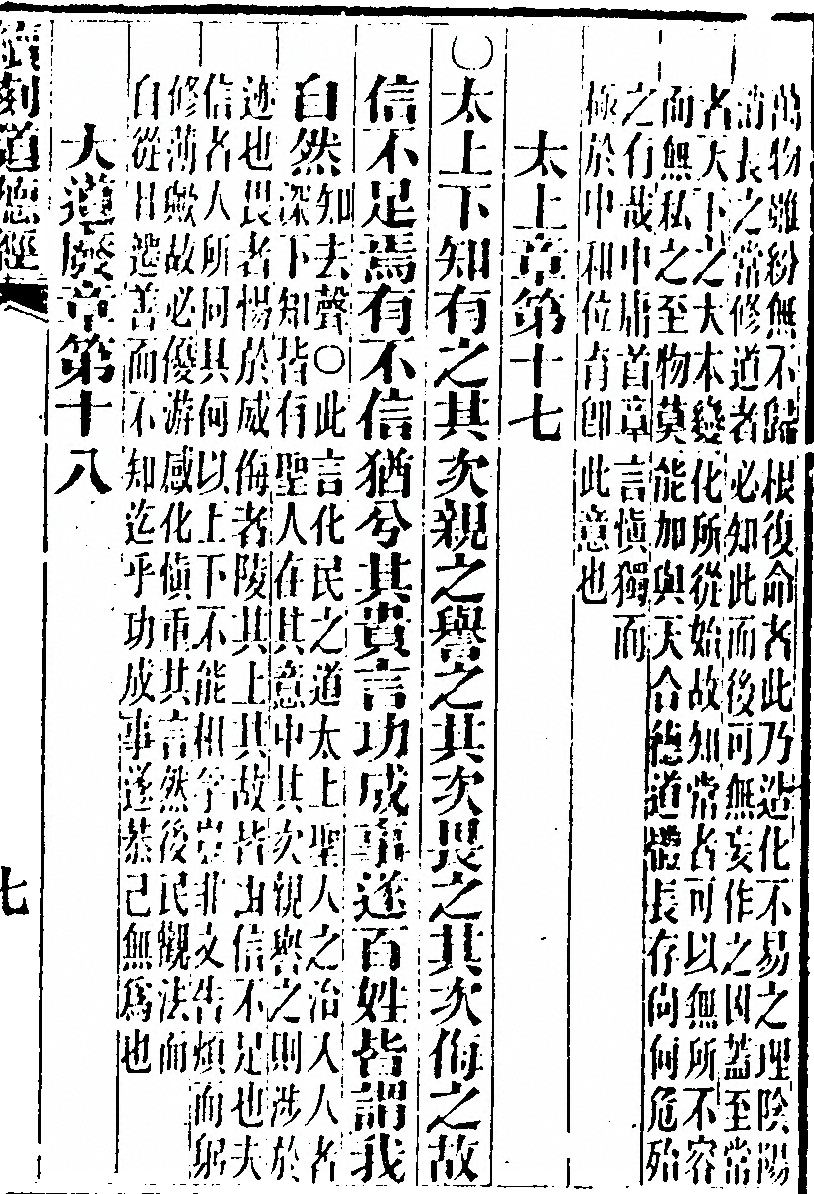 萬物雖紛無不歸根復命者此乃造化不易之理陰陽
消長之常修道者必知此而後可無妄作之凶蓋至常
者天下之大本變化所從始故知常者可以無所不容
而無私之至物莫能加與天合德道體長存尚何危殆
之有哉中庸首章言慎獨而
極於中和位育卽此意也
太上章第十七
○太上下知有之其次親之譽之其次畏之其次侮之故
信不足焉有不信猶兮其貴言功成事遂百姓皆謂我
自然
知去聲○此言化民之道太上聖人之治人人者
深下知皆有聖人在其意中其次親與之則涉於
迹也畏者惕於威侮者陵其上其故皆由信不足也夫
信者人所同具何以上下不能相孚豈非文告煩而躬
修薄歟故必優游感化慎重其言然後民觀法而
自從日遷善而不知迄乎功成事遂恭己無爲也
大道廢章第十八
續刻道德經
七